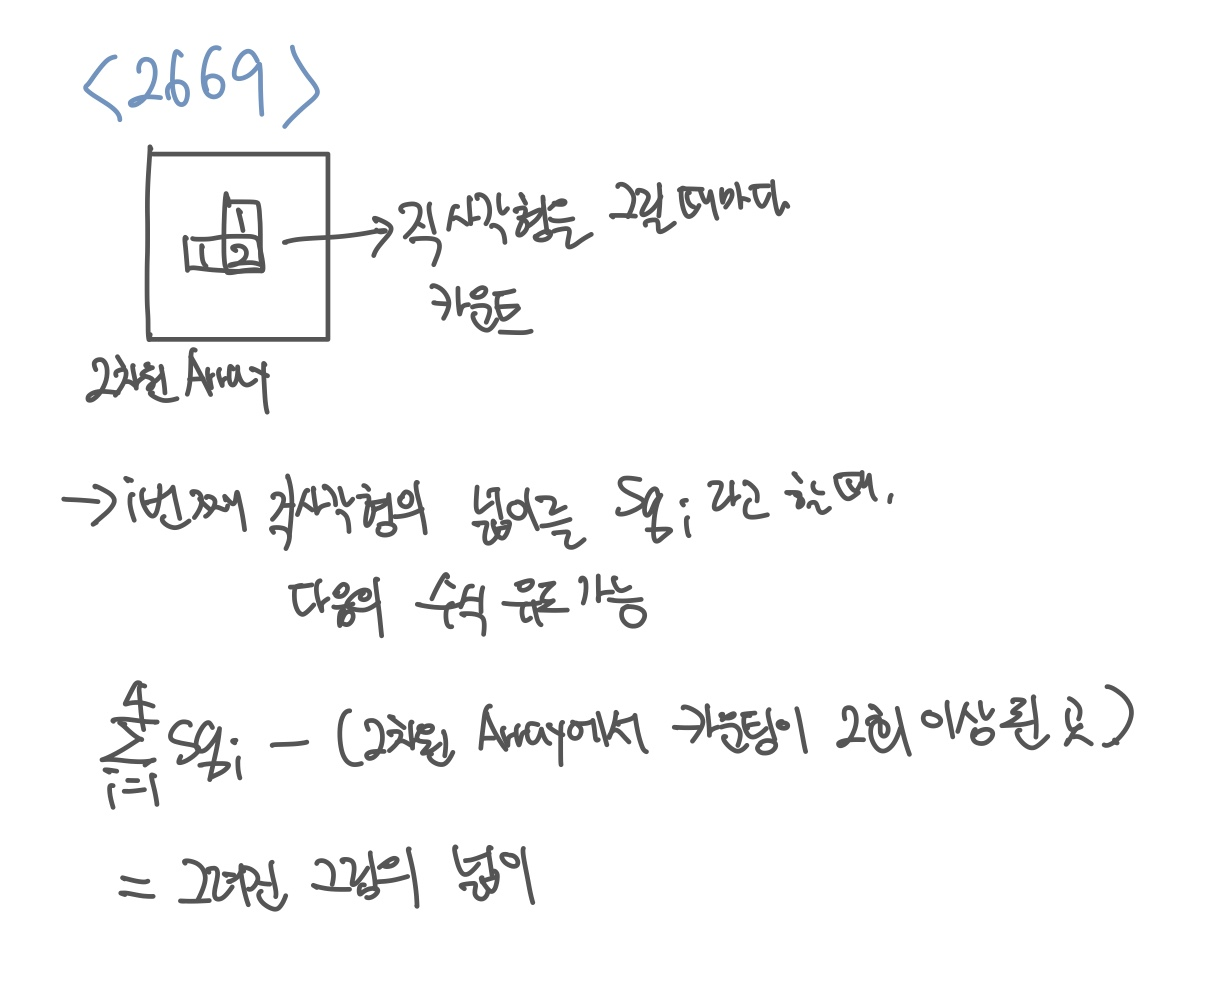 <2669>
1
1 2
직사각형을 그릴 때마다
카운트
2차원 Array
→ i번째 직사각형의 넓이를 Sqᵢ 라고 할 때,
다음의 수식 유도 가능
4
∑ Sqᵢ - (2차원 Array에서 카운팅이 2회 이상 된 곳)
i=1
= 그려진 그림의 넓이